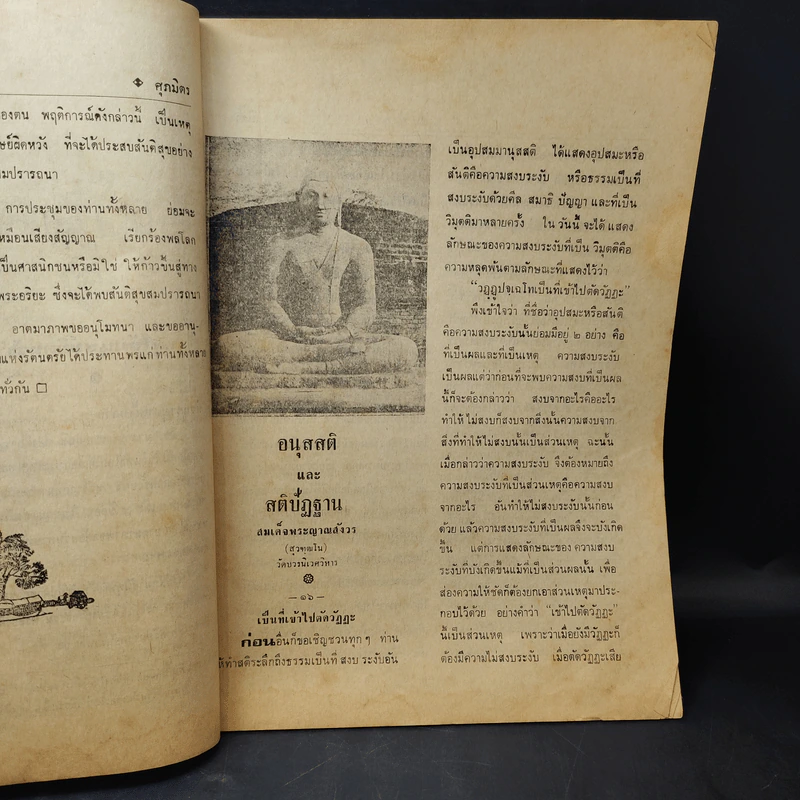 ศุภมิตร
องตน พฤติการณ์ดังกล่าวนี้ เป็นเหตุ
ษย์ผิดหวัง ที่จะได้ประสบสันติสุขอย่าง
มปรารถนา
การประชุมของท่านทั้งหลาย ย่อมจะ
หมือนเสียงสัญญาณ เรียกร้องพลโลก
เป็นศาสนิกชนหรือมิใช่ ให้ก้าวขึ้นสู่ทาง
พระอริยะ ซึ่งจะได้พบสันติสุขสมปรารถนา
อาตมาภาพขออนุโมทนา และขออานุ-
แห่งรัตนตรัยได้ประทานพรแก่ท่านทั้งหลาย
ทั่วกัน
อนุสสติ
และ
สติปัฏฐาน
สมเด็จพระญาณสังวร
(สุวฑฺฒโน)
วัดบวรนิเวศวิหาร
— ๑๖ —
เป็นที่เข้าไปตัดวัฏฏะ
ก่อนอื่นก็ขอเชิญชวนทุกๆ ท่าน
ให้ทำสติระลึกถึงธรรมเป็นที่ สงบ ระงับอัน
เป็นอุปสมมานุสสติ ได้แสดงอุปสมะหรือ
สันติคือความสงบระงับ หรือธรรมเป็นที่
สงบระงับด้วยศีล สมาธิ ปัญญา และที่เป็น
วิมุตติมาหลายครั้ง ใน วันนี้ จะได้ แสดง
ลักษณะของความสงบระงับที่เป็น วิมุตติคือ
ความหลุดพ้นตามลักษณะที่แสดงไว้ว่า
“วฏฺฏูปจฺเฉโทเป็นที่เข้าไปตัดวัฏฏะ”
พึงเข้าใจว่า ที่ชื่อว่าอุปสมะหรือสันติ
คือความสงบระงับนั้นย่อมมีอยู่ ๒ อย่าง คือ
ที่เป็นผลและที่เป็นเหตุ ความสงบระงับ
เป็นผลแต่ว่าก่อนที่จะพบความสงบที่เป็นผล
นี้ก็จะต้องกล่าวว่า สงบจากอะไรคืออะไร
ทำให้ ไม่สงบก็สงบจากสิ่งนั้นความสงบจาก
สิ่งที่ทำให้ไม่สงบนั้นเป็นส่วนเหตุ ฉะนั้น
เมื่อกล่าวว่าความสงบระงับ จึงต้องหมายถึง
ความสงบระงับที่เป็นส่วนเหตุคือความสงบ
จากอะไร อันทำให้ไม่สงบระงับนั้นก่อน
ด้วย แล้วความสงบระงับที่เป็นผลจึงจะบังเกิด
ขึ้น แต่การแสดงลักษณะของ ความสงบ
ระงับที่บังเกิดขึ้นแม้ที่เป็นส่วนผลนั้น เพื่อ
ส่องความให้ชัดก็ต้องยกเอาส่วนเหตุมาประ-
กอบไว้ด้วย อย่างคำว่า “เข้าไปตัดวัฏฏะ”
นี้เป็นส่วนเหตุ เพราะว่าเมื่อยังมีวัฏฏะก็
ต้องมีความไม่สงบระงับ เมื่อตัดวัฏฏะเสีย